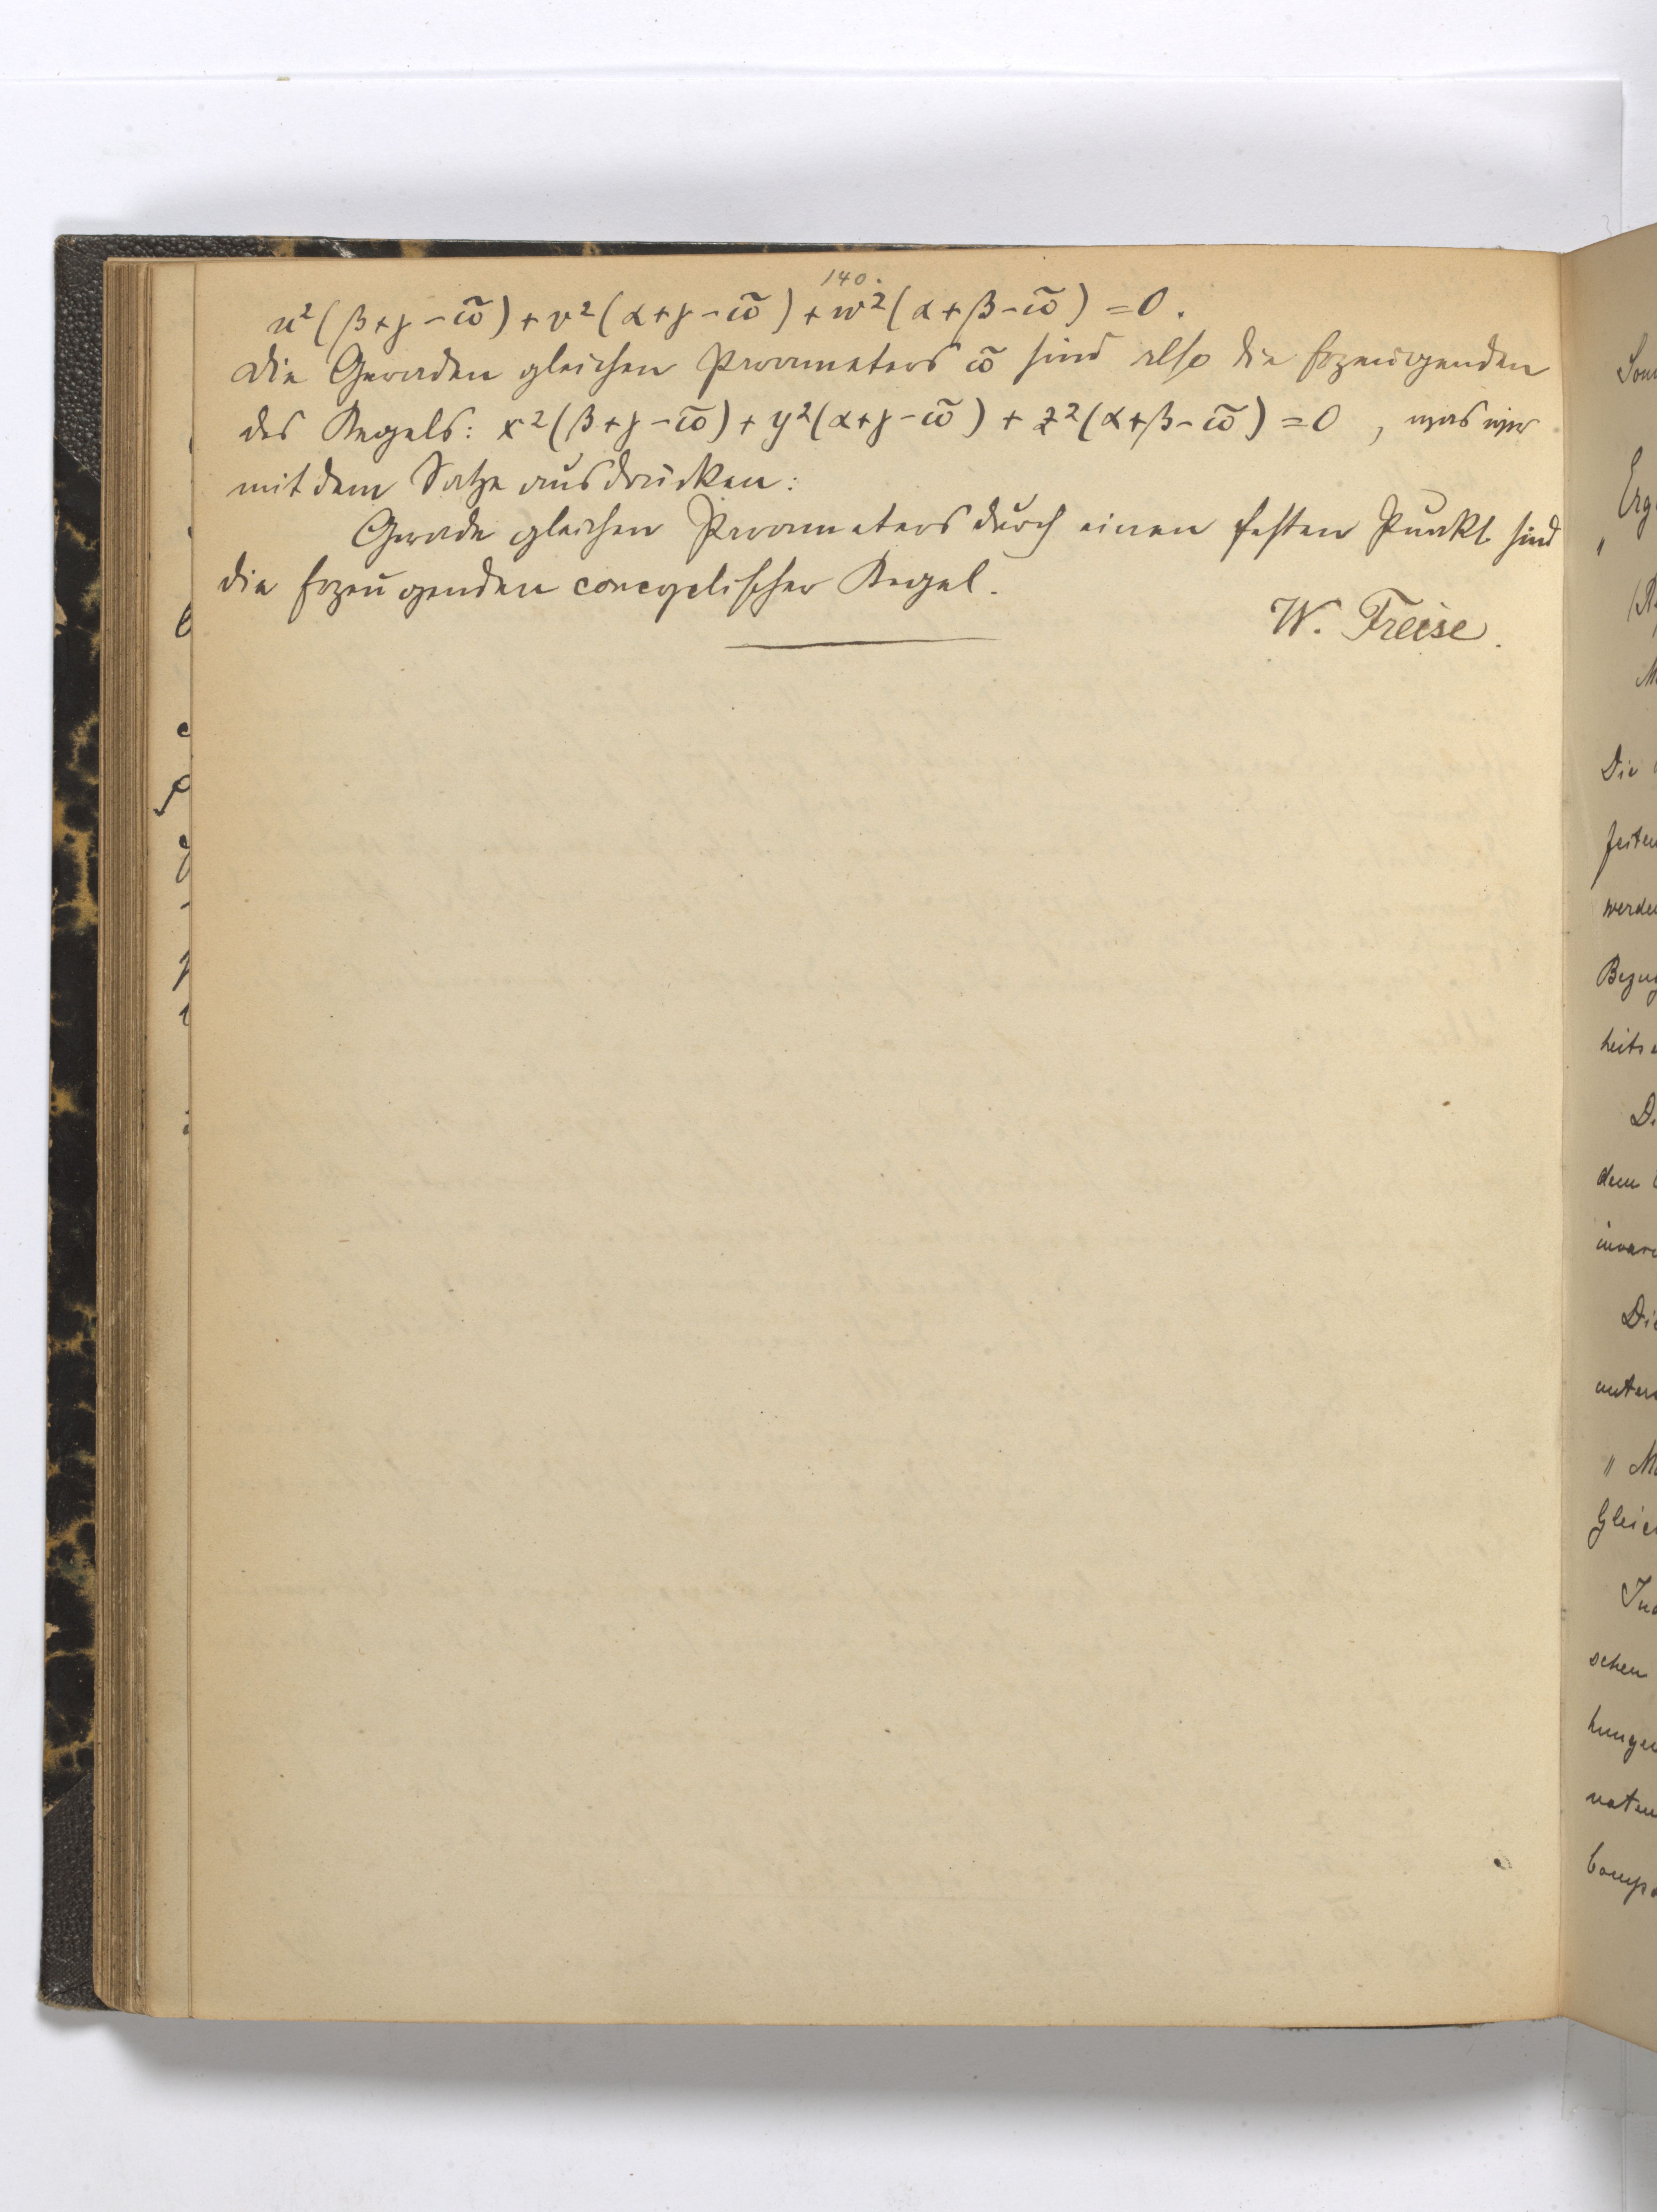 140.
u²(β+γ-ω̃)+v²(α+γ-ω̃)+w²(α+β-ω̃)=0.
Die Geraden gleichen Parameters ω̃ sind also die Erzeugenden
des Kegels: x²(β+γ-ω̃)+y²(α+γ-ω̃)+z²(α+β-ω̃)=0, was wir
mit dem Satze ausdrücken:
Gerade gleichen Parameters durch einen festen Punkt sind
die Erzeugenden concyclischer Kegel.
W. Freise.
Die
werde
Bezug
heits
D.
dem
Die
" M
Gleic
schen
hunge